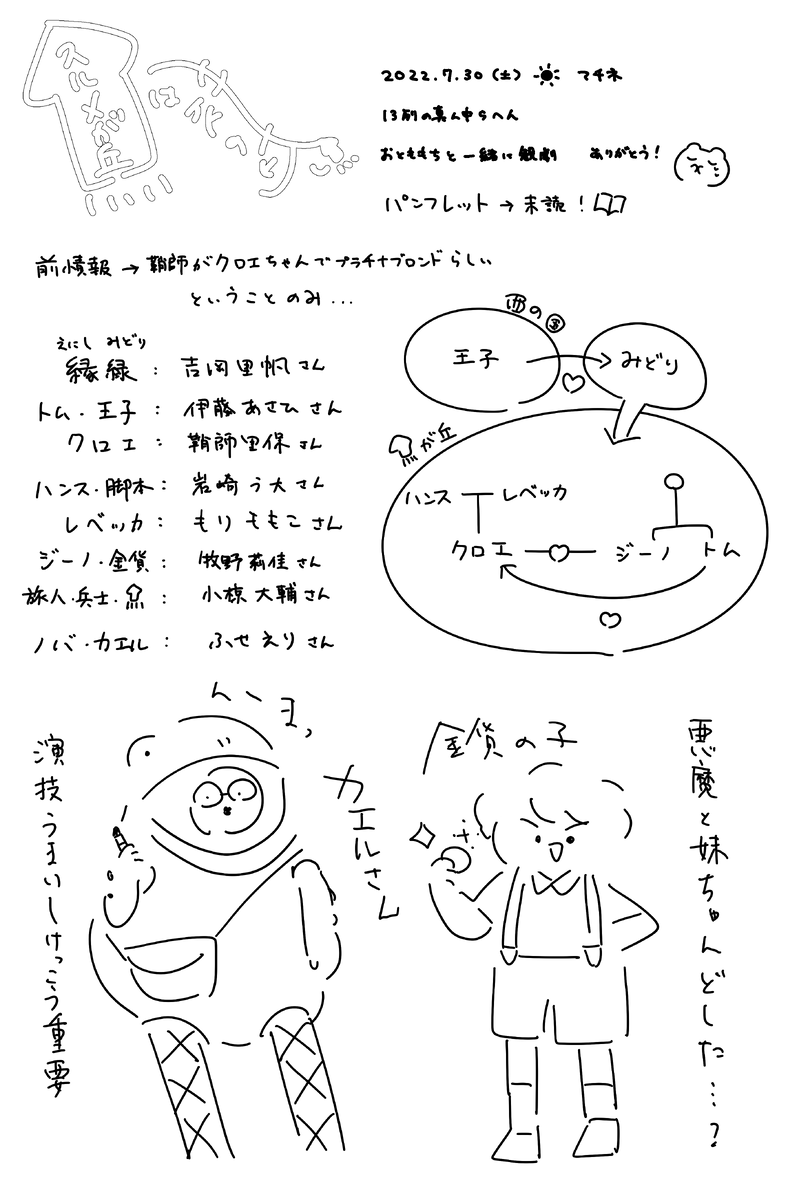 スルメが丘
は花の匂う
2022.7.30(土) マチネ
13列の真ん中らへん
おともだちと一緒に観劇 ありがとう!
パンフレット→未読!
前情報→鞘師がクロエちゃんでプラチナブロンドらしい
ということのみ...
えにし みどり
縁緑:吉岡里帆さん
トム・王子:伊藤あさひさん
クロエ:鞘師里保さん
ハンス・脚本:岩崎う大さん
レベッカ:もりももこさん
ジーノ・金貨:牧野莉佳さん
旅人・兵士・:小椋大輔さん
ノバ・カエル:ふせえりさん
西の国
王子
みどり
が丘
ハンス
レベッカ
クロエ
ジーノ
トム
んーま、
カエルさん
演技うまいしけっこう重要
金貨の子
悪魔と妹ちゅんどした…?